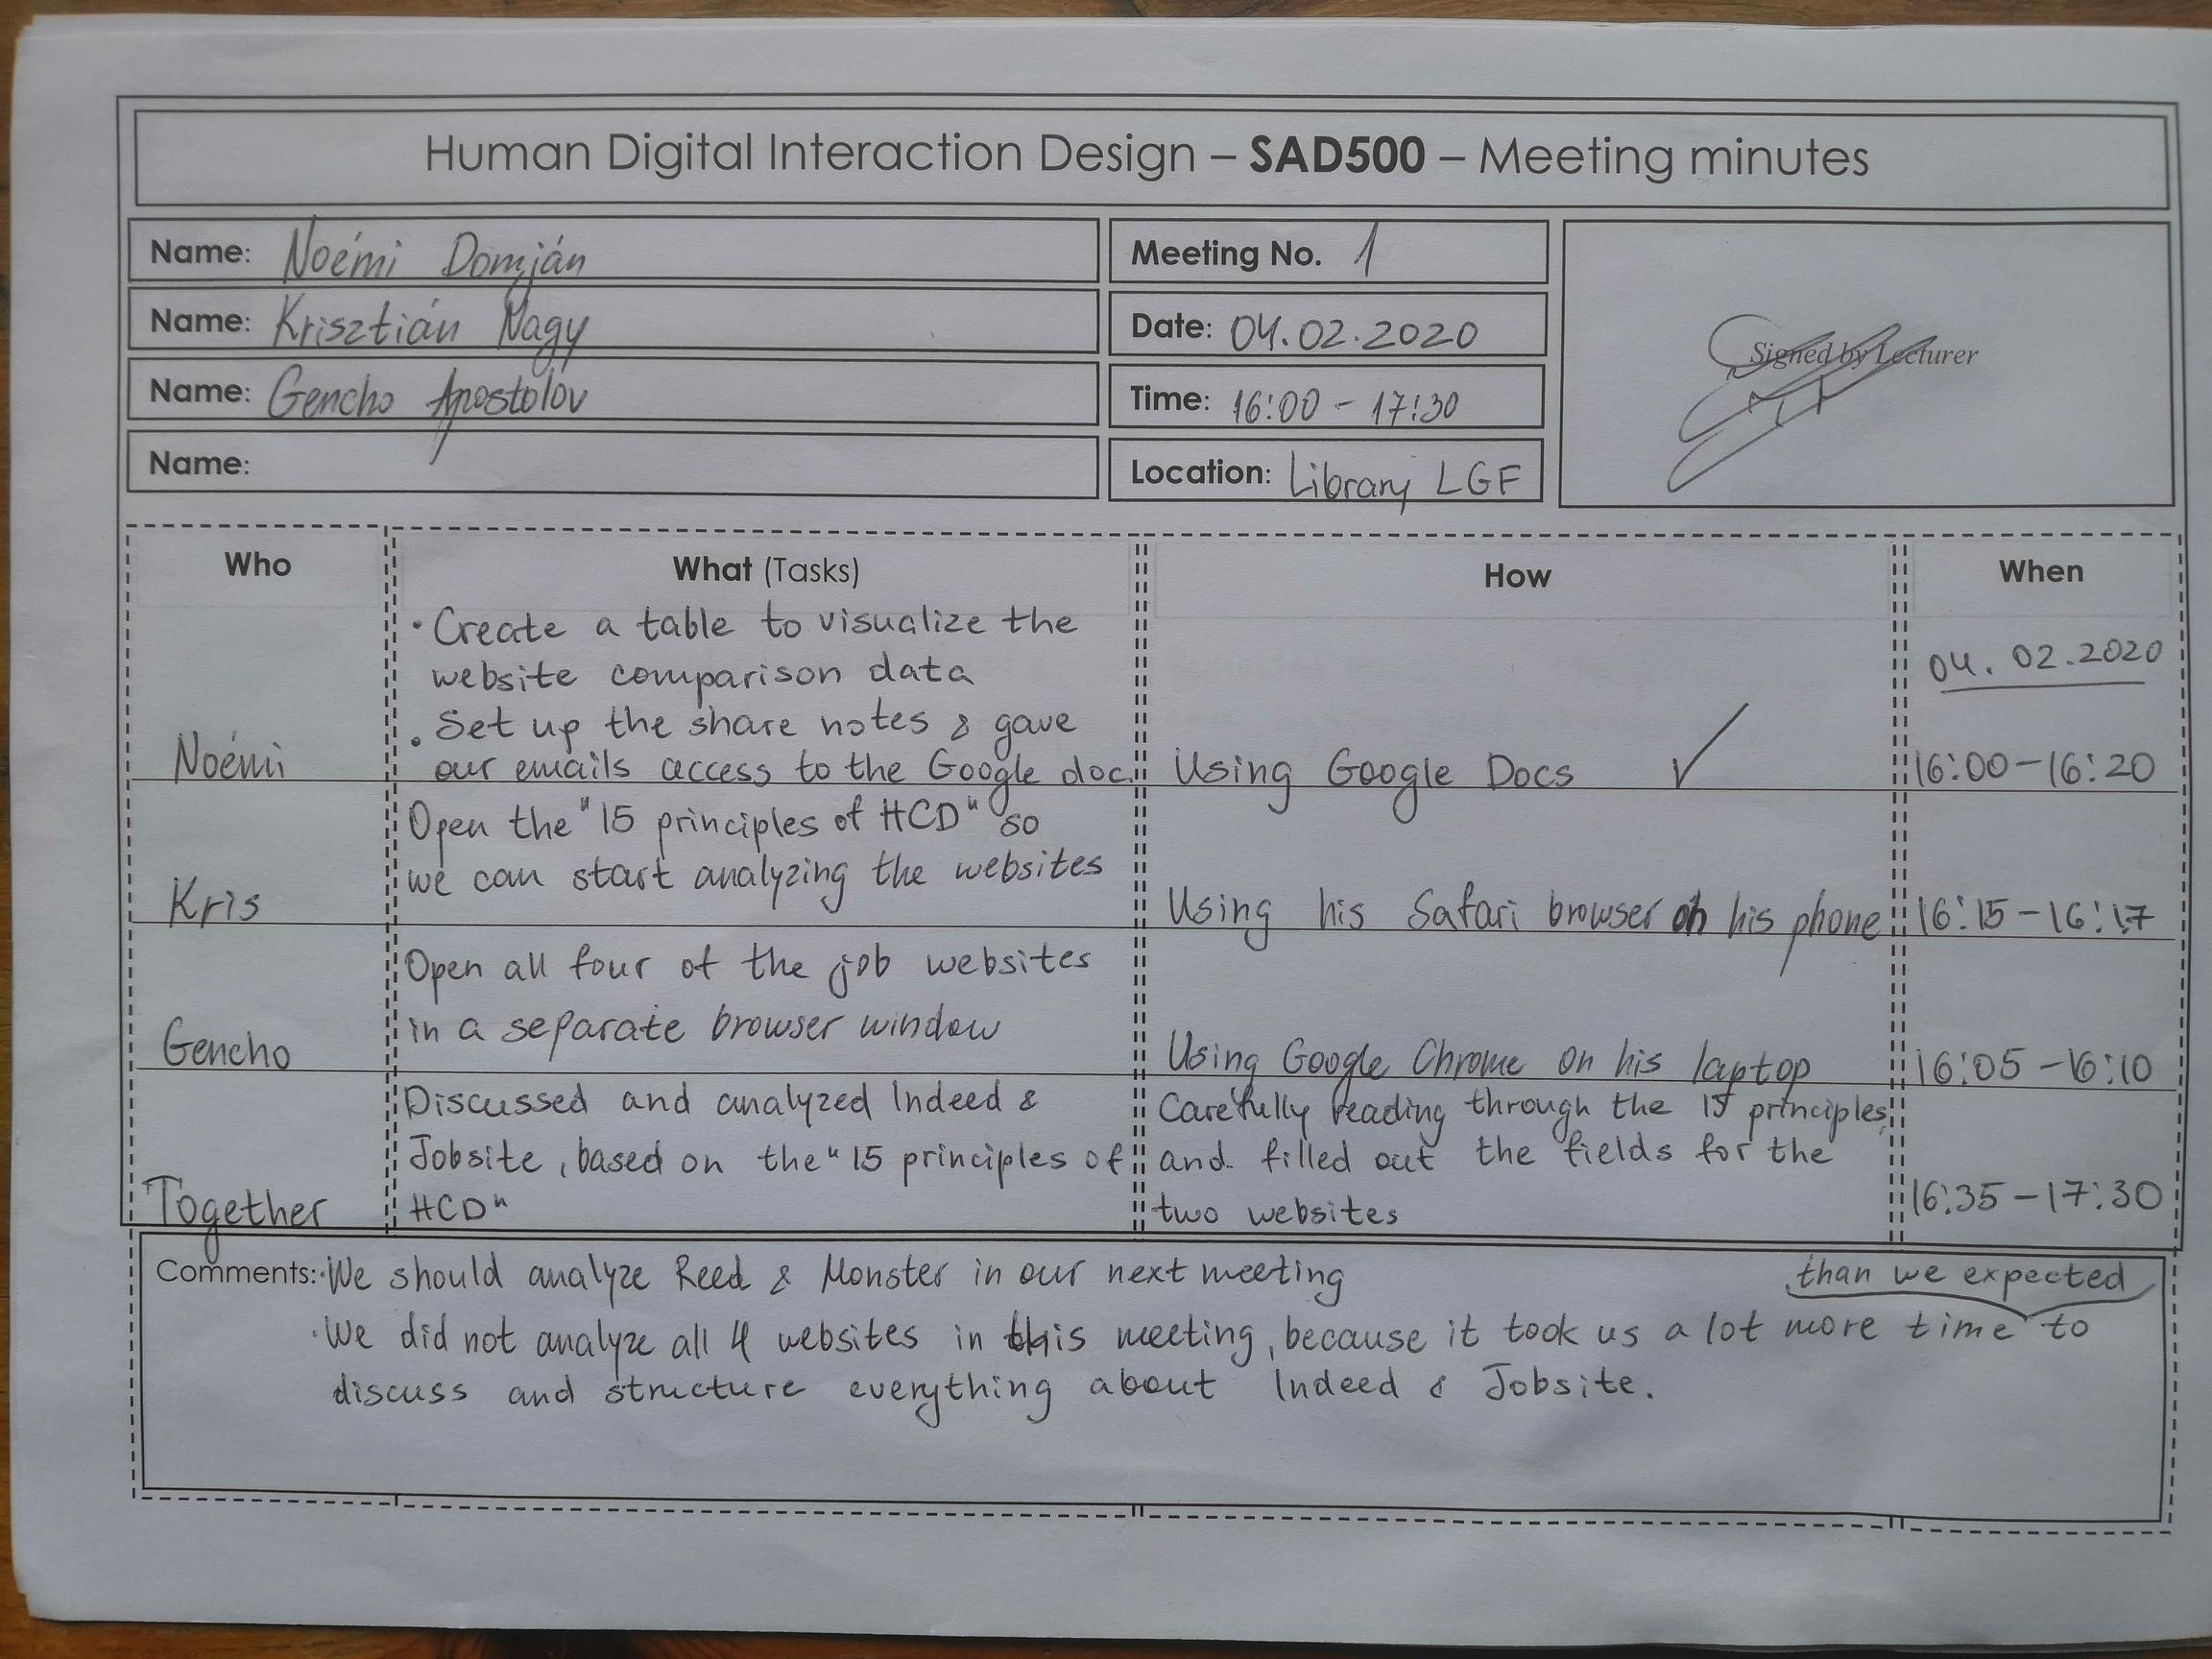 Human Digital Interaction Design – SAD500 – Meeting minutes
Name: Noémi Domján
Meeting No. 1
Name: Krisztián Nagy
Date: 04.02.2020
Signed by Lecturer
Name: Gencho Apostolov
Time: 16:00 - 17:30
Name:
Location: Library LGF
Who
What (Tasks)
How
When
Noémi
• Create a table to visualize the
website comparison data
• Set up the share notes & gave
our emails access to the Google doc.
Using Google Docs ✓
04.02.2020
16:00-16:20
Kris
Open the "15 principles of HCD" so
we can start analyzing the websites
Using his Safari browser on his phone
16:15-16:17
Gencho
Open all four of the job websites
in a separate browser window
Using Google Chrome on his laptop
16:05-16:10
Together
Discussed and analyzed Indeed &
Jobsite, based on the "15 principles of
HCD"
Carefully reading through the 15 principles,
and filled out the fields for the
two websites
16:35-17:30
Comments: • We should analyze Reed & Monster in our next meeting
than we expected
• We did not analyze all 4 websites in this meeting, because it took us a lot more time to
discuss and structure everything about Indeed & Jobsite.